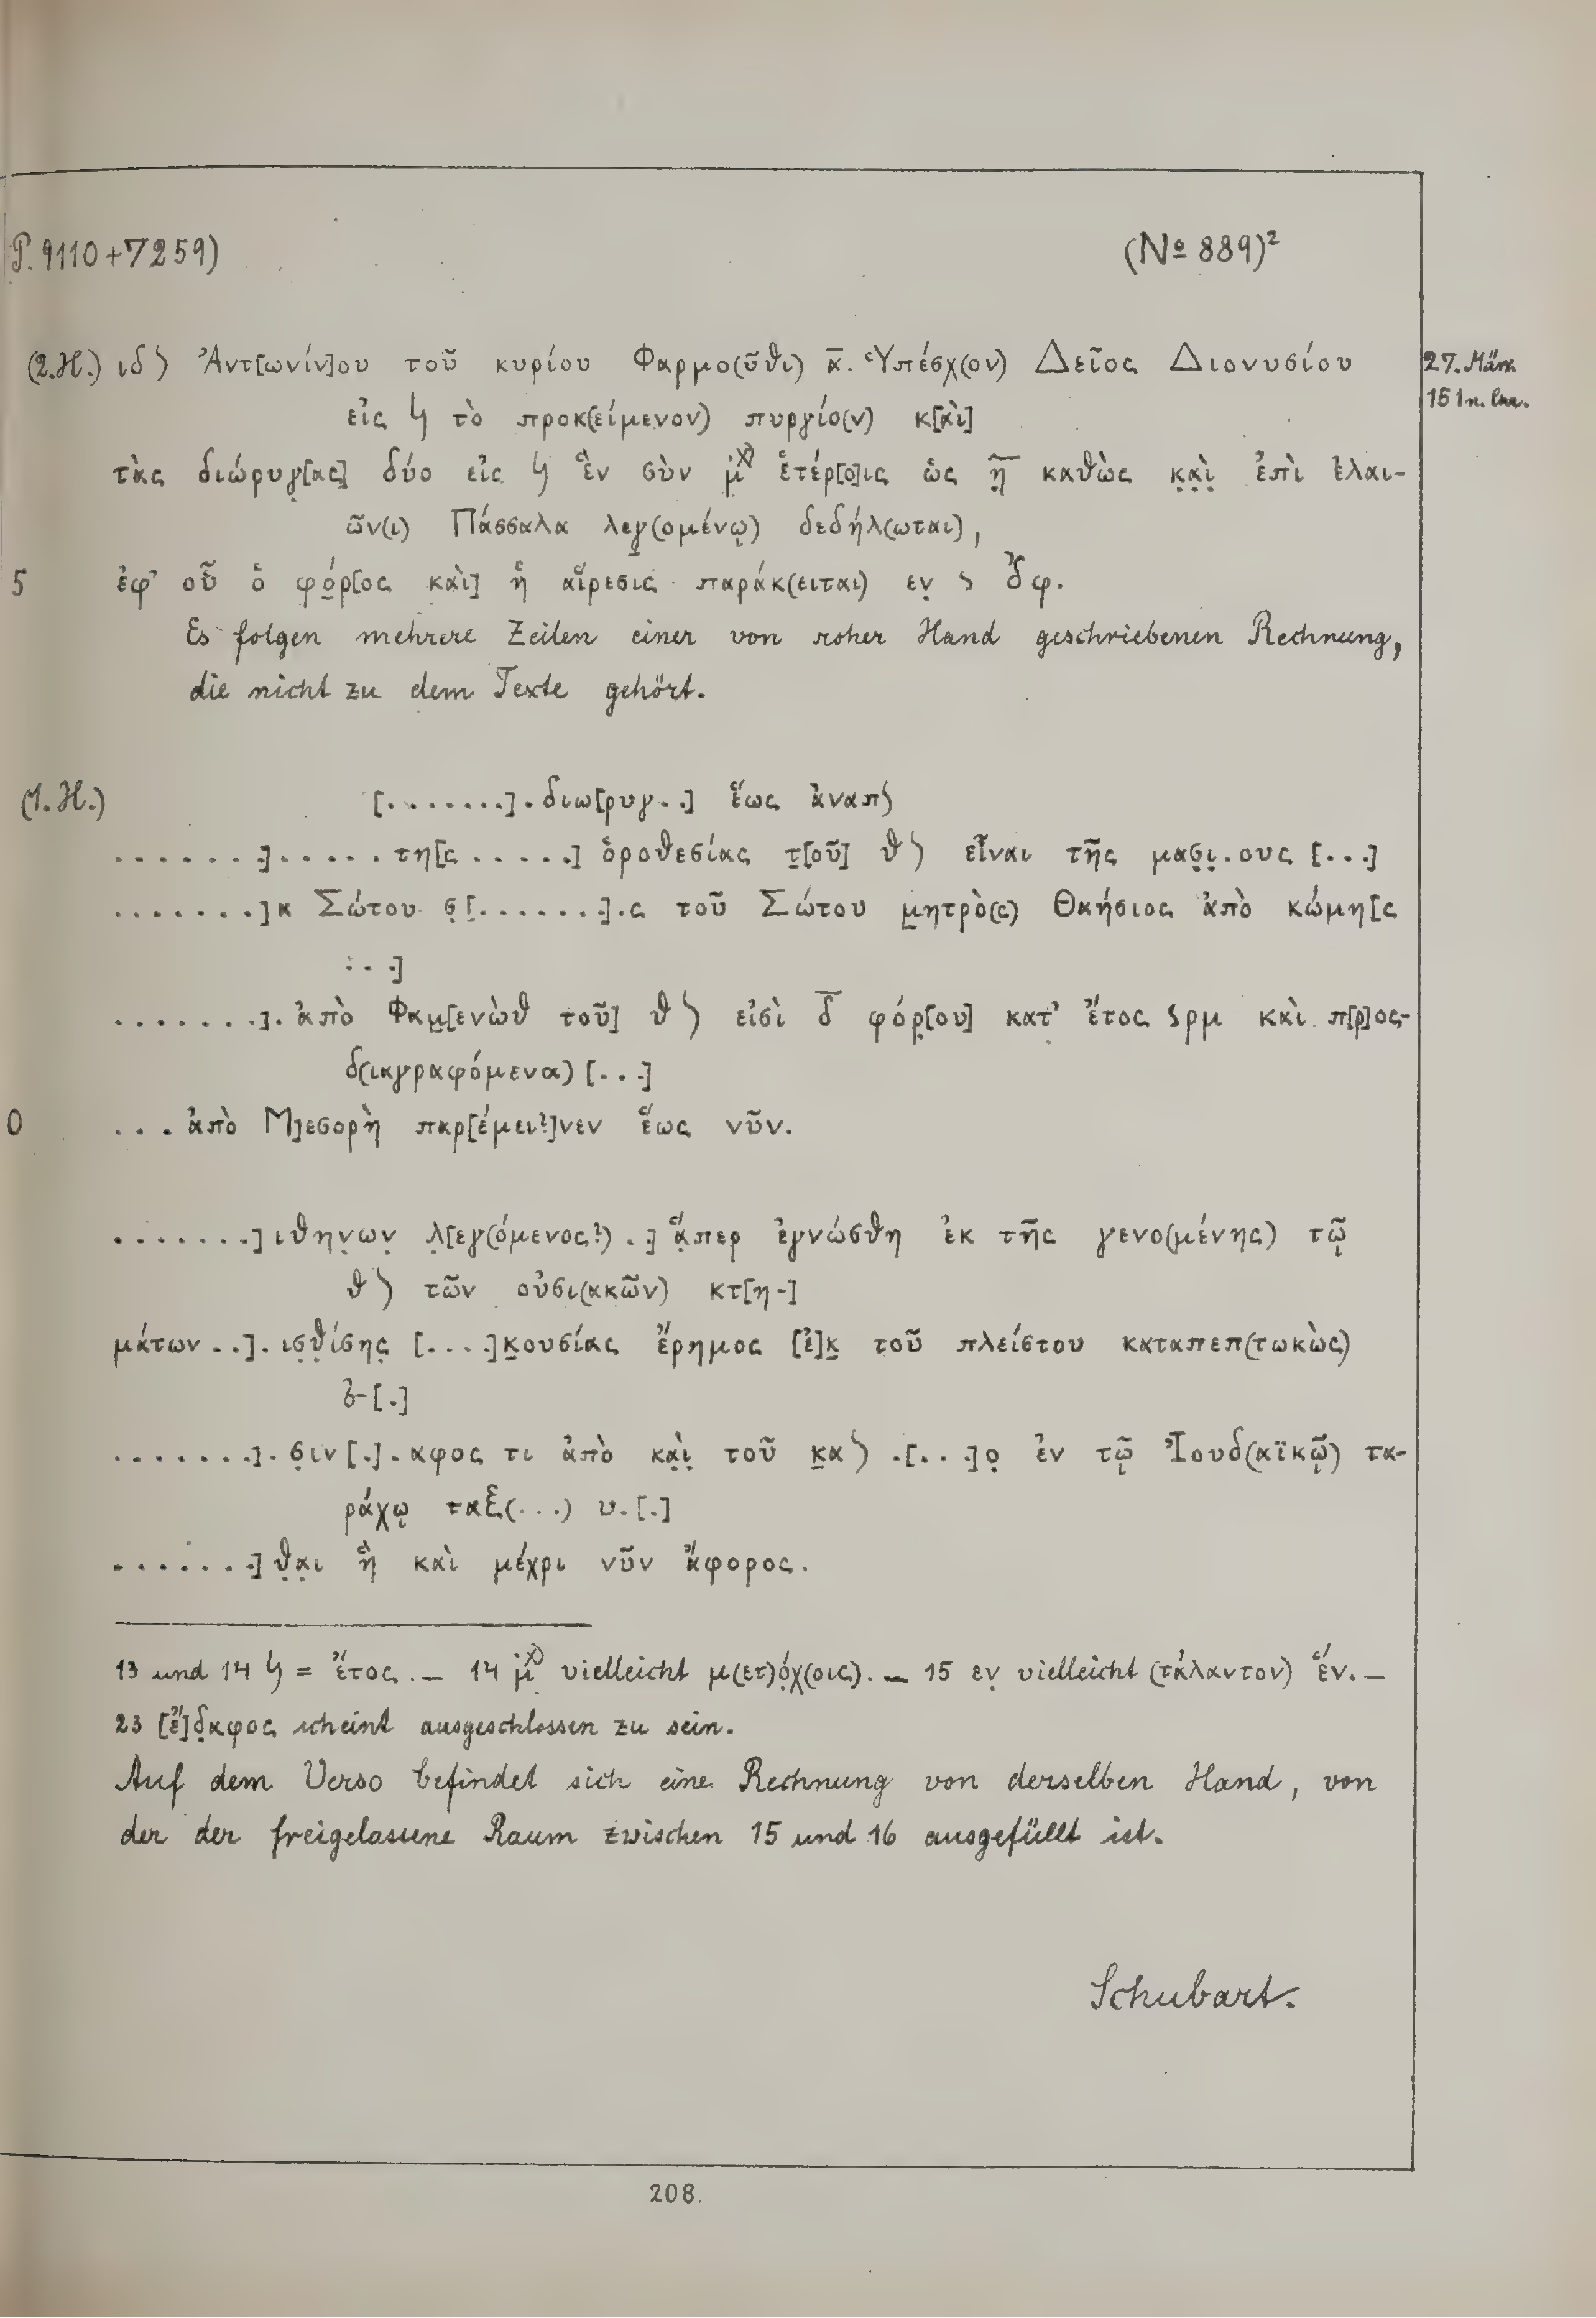 P. 9110+7259) (№ 889)²
(2.H.) ιδ) Ἀντ[ωνίν]ου τοῦ κυρίου Φαρμο(ῦθι) α̅. Ὑπέσχ(ον) Δεῖος Διονυσίου 27. März
151 n. Chr.
εἰς ϟ τὸ προκ(είμενον) πυργίο(ν) κ[αὶ]
τὰς διώρυγ̣[ας] δύο εἰς ϟ ἓν σὺν μ̣̇χ) ἑτέρ[ο]ις ὡς η̣̅ καθὼς κ̣α̣ὶ̣ ἐπὶ ἐλαι-
ῶν(ι) Πάσσαλα λεγ̣(ομένῳ) δεδήλ(ωται),
5 ἐφ' οὗ ὁ φό̣ρ[ος καὶ] ἡ αἵρεσις παράκ(ειται) εν̣ ς Ὀ̓φ.
Es folgen mehrere Zeilen einer von roher Hand geschriebenen Rechnung,
die nicht zu dem Texte gehört.
(1.H.) [.......]. διω[ρυγ..] ἕως ἀναπς
.......]..... τη[ς .....] ὁροθεσίας τ̣[οῦ] θ) εἶναι τῆς μασ̣ι̣.ους [...]
.......]α Σώτου σ̣[.......].ς τοῦ Σώτου μ̣ητρὸ(ς) Θαήσιος ἀπὸ κώμη[ς
...]
.......]. ἀπὸ Φαμ̣[ενὼθ τοῦ] θ) εἰσὶ δ̅ φόρ̣[ου] κατ' ἔτος ςρμ καὶ π[ρ]οσ-
δ(ιαγραφόμενα) [...]
0 ... ἀπὸ Μ]εσορὴ παρ[έμει?]νεν ἕως νῦν.
.......]ιθην̣ων̣ λ̣[εγ(όμενος?) .] ἅ̣περ ἐγνώσθη ἐκ τῆς γενο(μένης) τῷ
θ) τῶν οὐσι(ακῶν) κτ[η-]
μάτων ..]. ισ̣θ̣ίσης̣ [....]κ̣ουσίας ἔρημος [ἐ]κ̣ τοῦ πλείστου καταπεπ(τωκὼς)
𐅵-[.]
.......]. σ̣ιν[.].αφος τι ἀπὸ κα̣ὶ̣ τοῦ κ̣α) .[...]ο̣ ἐν τῷ Ἰουδ(αϊκῷ) τα-
ράχῳ ταξ(...) υ.[.]
.......]θ̣α̣ι ἣ καὶ μέχρι νῦν ἄφορος.
13 und 14 ϟ = ἔτος. — 14 μ̣̇χ) vielleicht μ(ετ)ό̣χ(οις). — 15 εν̣ vielleicht (τάλαντον) ἕν. —
23 [ἔ]δ̣αφος scheint ausgeschlossen zu sein.
Auf dem Verso befindet sich eine Rechnung von derselben Hand, von
der der freigelassene Raum zwischen 15 und 16 ausgefüllt ist.
Schubart.
208.